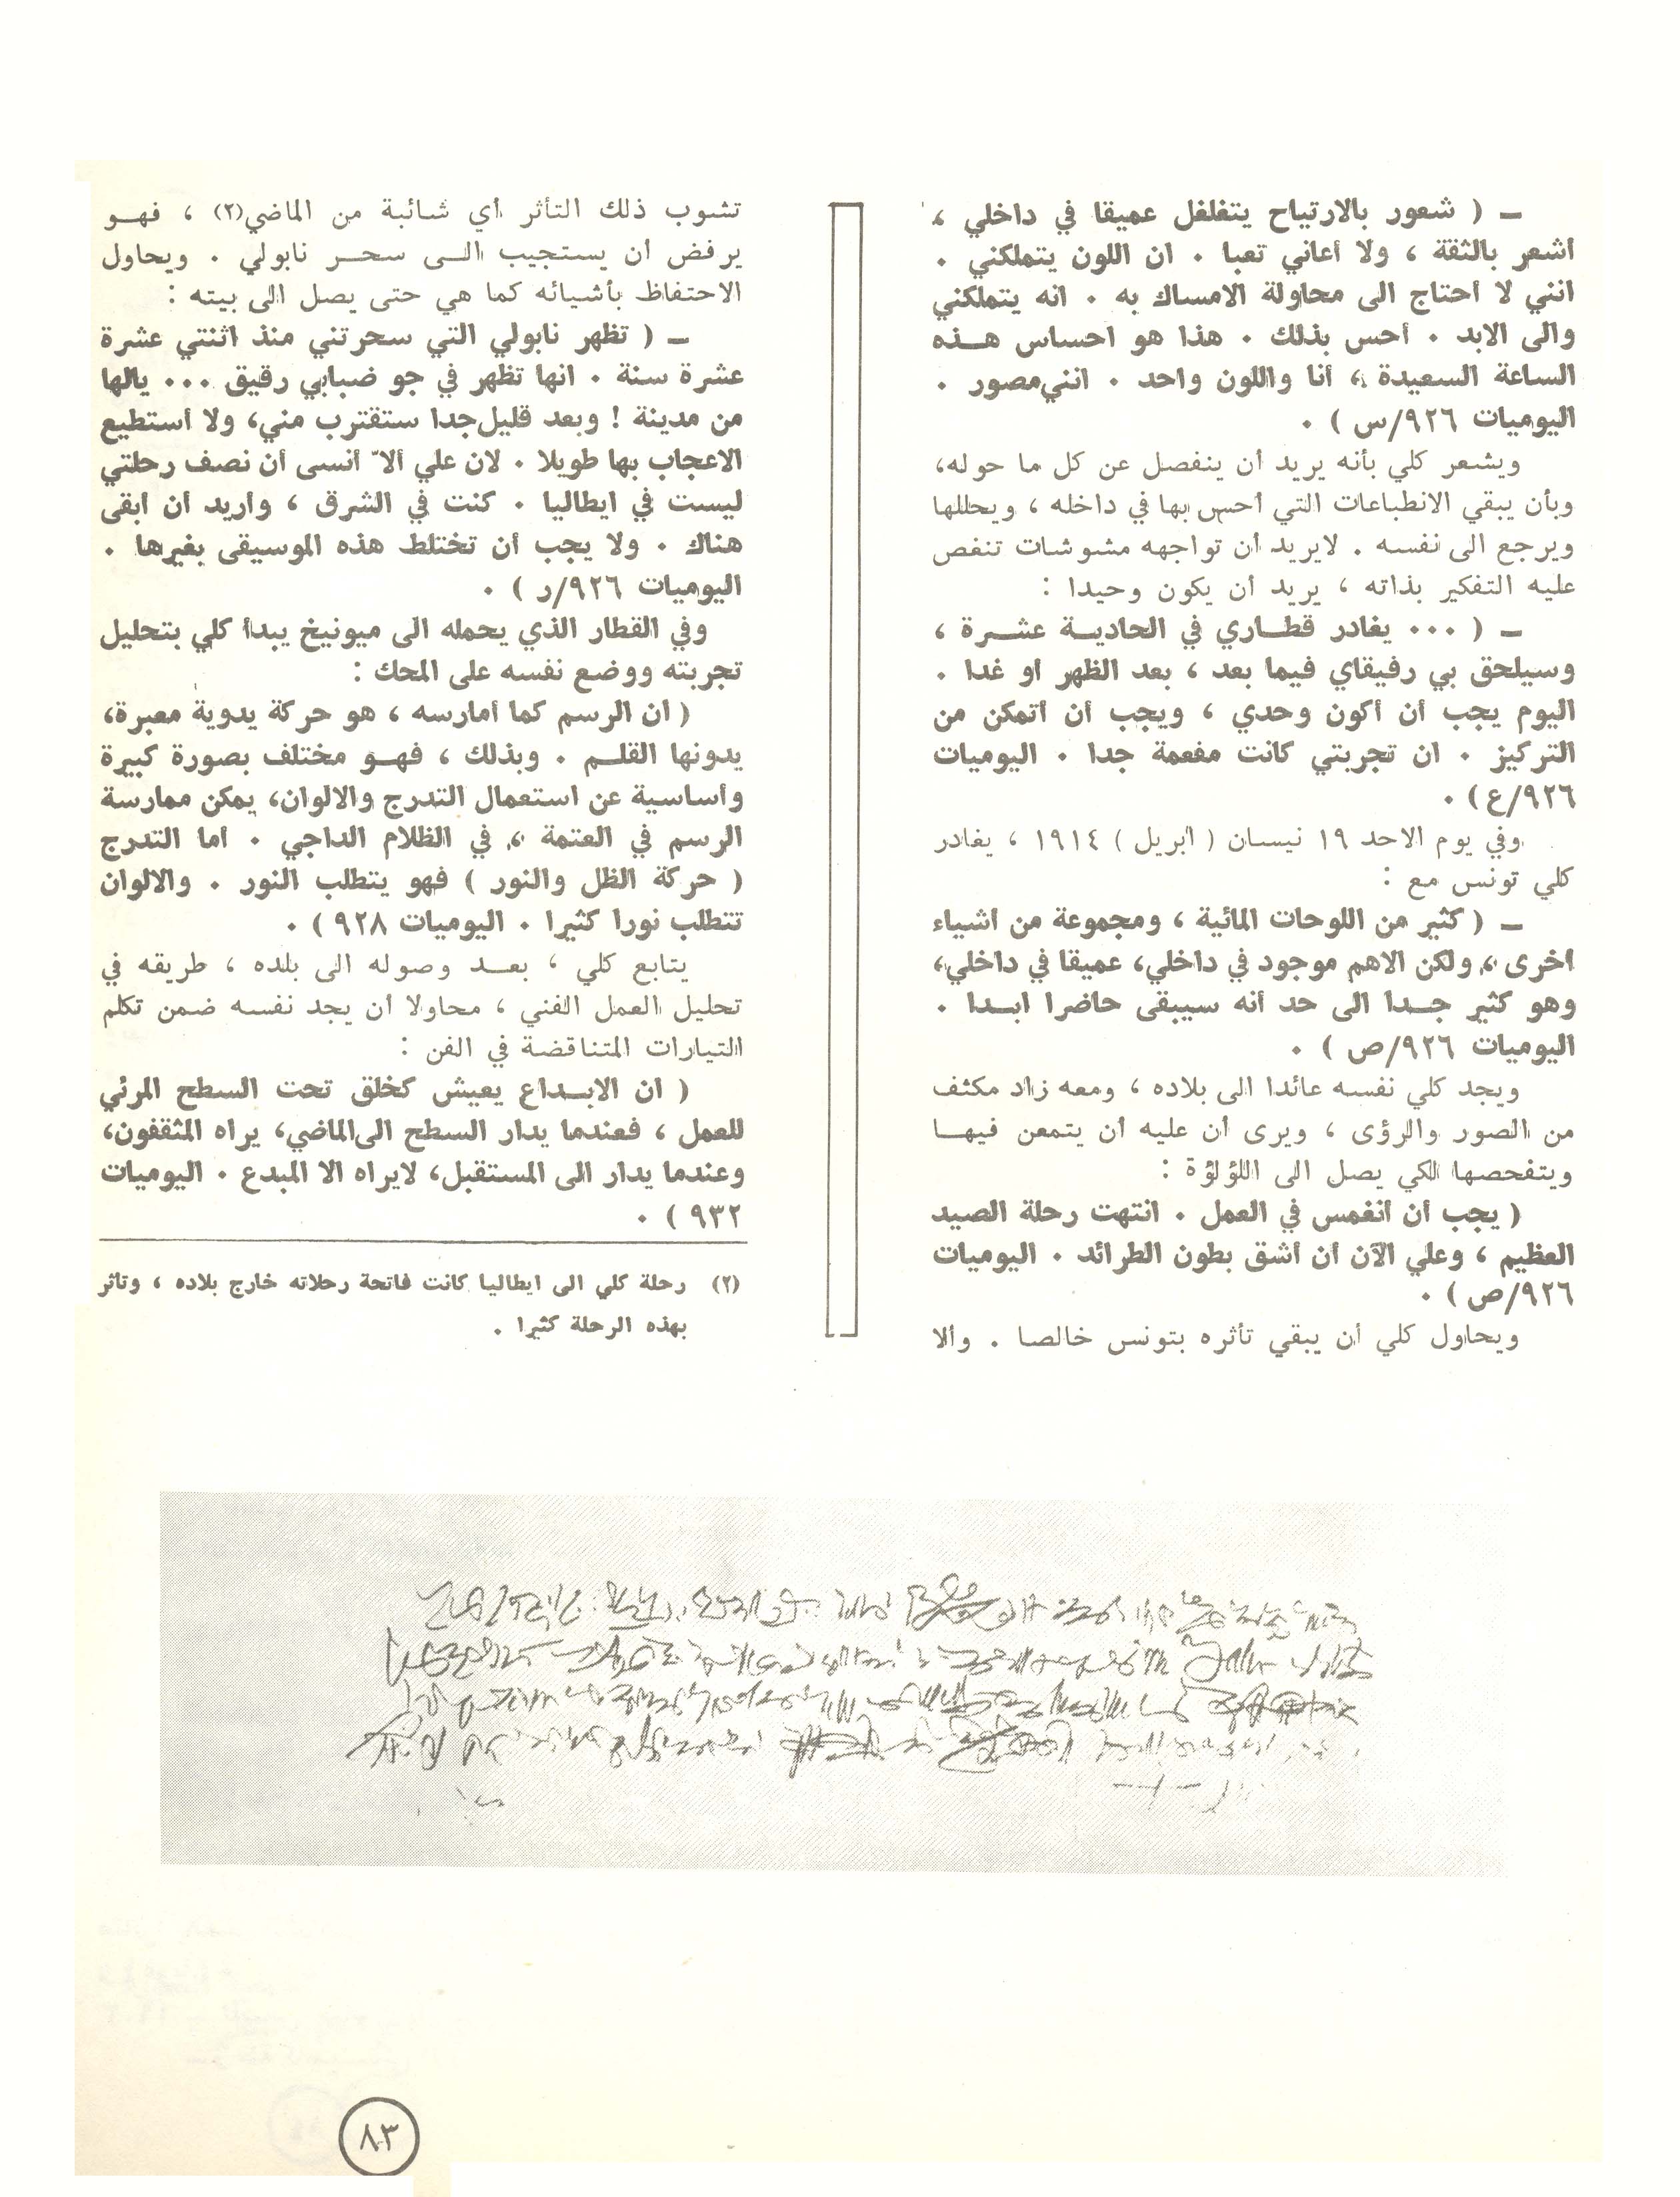 ـ ( شعور بالارتياح يتغلغل عميقا في داخلي ،
أشعر بالثقة ، ولا أعاني تعبا . ان اللون يتملكني .
انني لا أحتاج الى محاولة الامساك به . انه يتملكني
والى الابد . أحس بذلك . هذا هو احساس هـذه
الساعة السعيدة ، أنا واللون واحد . انني مصور .
اليوميات ٩٢٦/س ) .
ويشعر كلي بأنه يريد أن ينفصل عن كل ما حوله،
وبأن يبقي الانطباعات التي أحس بها في داخله ، ويحللها
ويرجع الى نفسه . لايريد أن تواجهه مشوشات تنغص
عليه التفكير بذاته ، يريد أن يكون وحيدا :
ـ ( ... يغادر قطـاري في الحاديـة عشـرة ،
وسيلحق بي رفيقاي فيما بعد ، بعد الظهر او غدا .
اليوم يجب أن أكون وحدي ، ويجب أن أتمكن من
التركيز . ان تجربتي كانت مفعمة جدا . اليوميات
٩٢٦/ع ) .
وفي يوم الاحد ١٩ نيسان ( ابريل ) ١٩١٤ ، يغادر
كلي تونس مع :
ـ ( كثير من اللوحات المائية ، ومجموعة من أشياء
اخرى ، ولكن الاهم موجود في داخلي، عميقا في داخلي،
وهو كثير جـدا الى حد أنه سيبقى حاضرا ابـدا .
اليوميات ٩٢٦/ص ) .
ويجد كلي نفسه عائدا الى بلاده ، ومعه زاد مكثف
من الصور والرؤى ، ويرى أن عليه أن يتمعن فيهـا
ويتفحصها لكي يصل الى اللؤلؤة :
( يجب أن أنغمس في العمل . انتهت رحلة الصيد
العظيم ، وعلي الآن أن أشق بطون الطرائد . اليوميات
٩٢٦/ص ) .
ويحاول كلي أن يبقي تأثره بتونس خالصا . وألا
تشوب ذلك التأثر أي شائبة من الماضي(٢) ، فهـو
يرفض أن يستجيب الـى سحـر نابولي . ويحاول
الاحتفاظ بأشيائه كما هي حتى يصل الى بيته :
ـ ( تظهر نابولي التي سحرتني منذ اثنتي عشرة
عشرة سنة . انها تظهر في جو ضبابي رقيق ... يالها
من مدينة ! وبعد قليل جدا ستقترب مني، ولا أستطيع
الاعجاب بها طويلا . لان علي ألاّ أنسى أن نصف رحلتي
ليست في ايطاليا . كنت في الشرق ، وأريد أن أبقى
هناك . ولا يجب أن تختلط هذه الموسيقى بغيرها .
اليوميات ٩٢٦/ر ) .
وفي القطار الذي يحمله الى ميونيخ يبدأ كلي بتحليل
تجربته ووضع نفسه على المحك :
( أن الرسم كما أمارسه ، هو حركة يدوية معبرة،
يدونها القلـم . وبذلك ، فهـو مختلف بصورة كبيرة
وأساسية عن استعمال التدرج والالوان، يمكن ممارسة
الرسم في العتمة ، في الظلام الداجي . أما التدرج
( حركة الظل والنور ) فهو يتطلب النور . والالوان
تتطلب نورا كثيرا . اليوميات ٩٢٨ ) .
يتابع كلي ، بعـد وصوله الى بلده ، طريقه في
تحليل العمل الفني ، محاولا أن يجد نفسه ضمن تكلم
التيارات المتناقضة في الفن :
( ان الابـداع يعيش كخلق تحت السطح المرئي
للعمل ، فعندما يدار السطح الى الماضي، يراه المثقفون،
وعندما يدار الى المستقبل، لايراه الا المبدع . اليوميات
٩٣٢ ) .
(٢) رحلة كلي الى ايطاليا كانت فاتحة رحلاته خارج بلاده ، وتأثر
بهذه الرحلة كثيرا .
٨٣